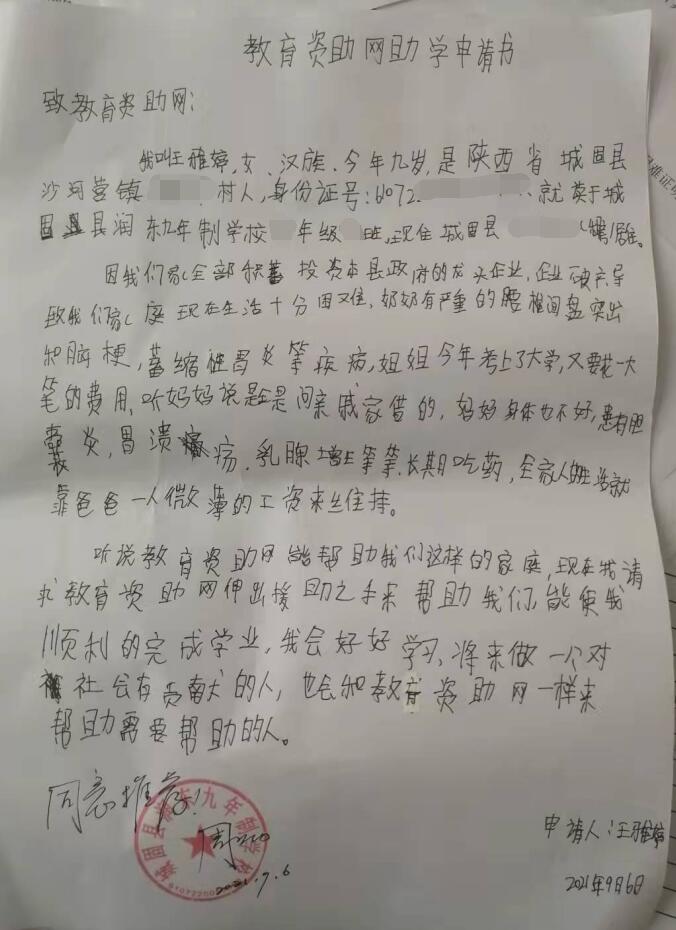 教育资助网助学申请书
致教育资助网:
我叫王雅婷,女、汉族、今年九岁,是陕西省城固县
沙河营镇 村人,身份证号:61072 .就读于城
固县润东九年制学校 年级 班,现住城固县
因我们家全部积蓄投资本县政府的龙头企业,企业破产导
致我们家庭现在生活十分困难,奶奶有严重的腰椎间盘突出
和脑梗,萎缩性胃炎等疾病,姐姐今年考上了大学,又要花一大
笔的费用,听妈妈说是全是问亲戚家借的,妈妈身体也不好,患有胆
囊炎,胃溃疡.乳腺增生等等,长期吃药,全家人生活就
靠爸爸一人微薄的工资来维持。
听说教育资助网能帮助我们这样的家庭,现在我请
求教育资助网伸出援助之手来帮助我们,能使我
顺利的完成学业,我会好好学习,将来做一个对
社会有贡献的人,也会和教育资助网一样来
帮助需要帮助的人。
同意推荐!
2021.9.6
城固县润东九年制学校
申请人:王雅婷
2021年9月6日